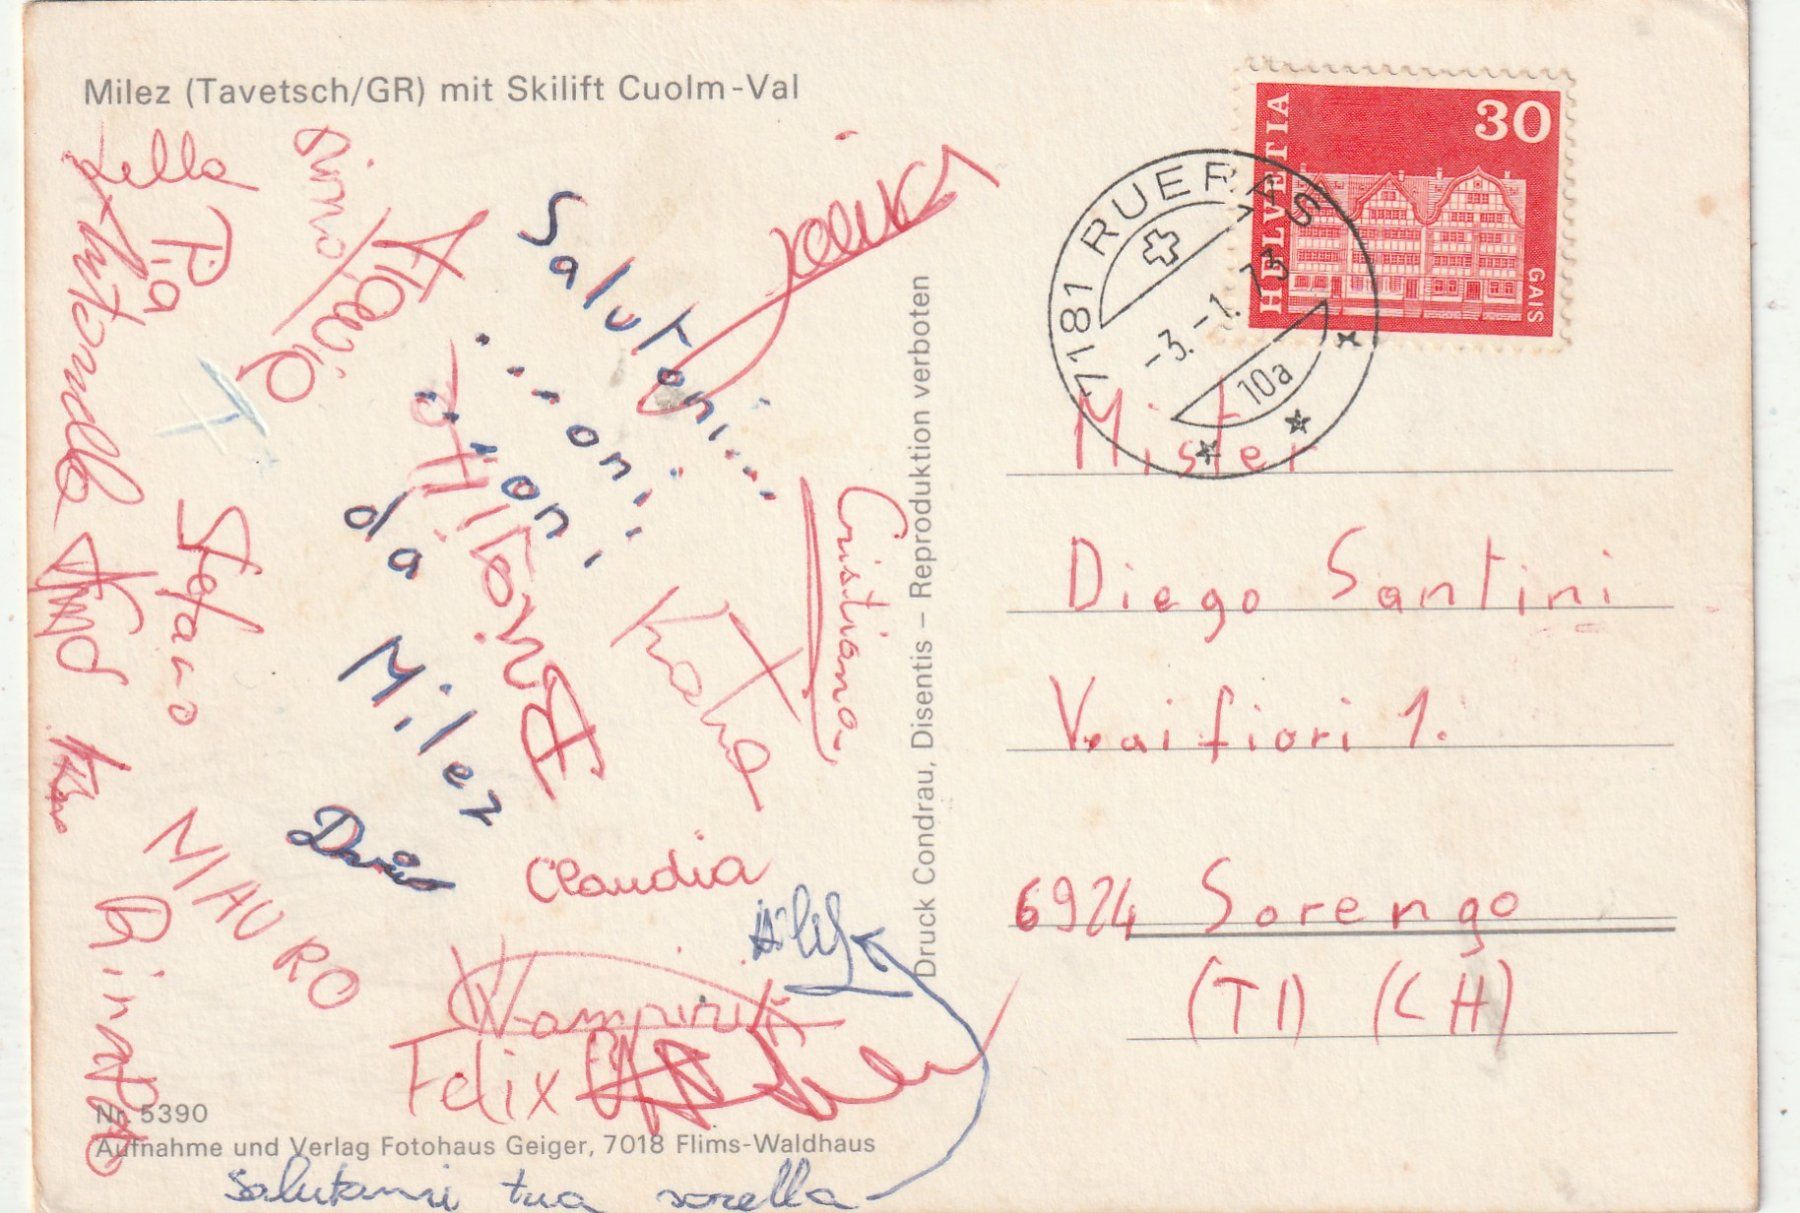 Milez (Tavetsch/GR) mit Skilift Cuolm-Val
Lella
Pia
Antonella
Dino
Flavio
Salutoni...
...oni,
...oni,
da Milez
Cristiana
Katia
Stefano
MAURO
Claudia
Wampiri
Felix
Nr. 5390
Aufnahme und Verlag Fotohaus Geiger, 7018 Flims-Waldhaus
Salutami tua sorella
Druck Condrau, Disentis – Reproduktion verboten
HELVETIA
30
GAIS
7181 RUERAS
-3.-1.73
10a
Mister
Diego Santini
V. ai fiori 1.
6924 Sorengo
(TI) (CH)